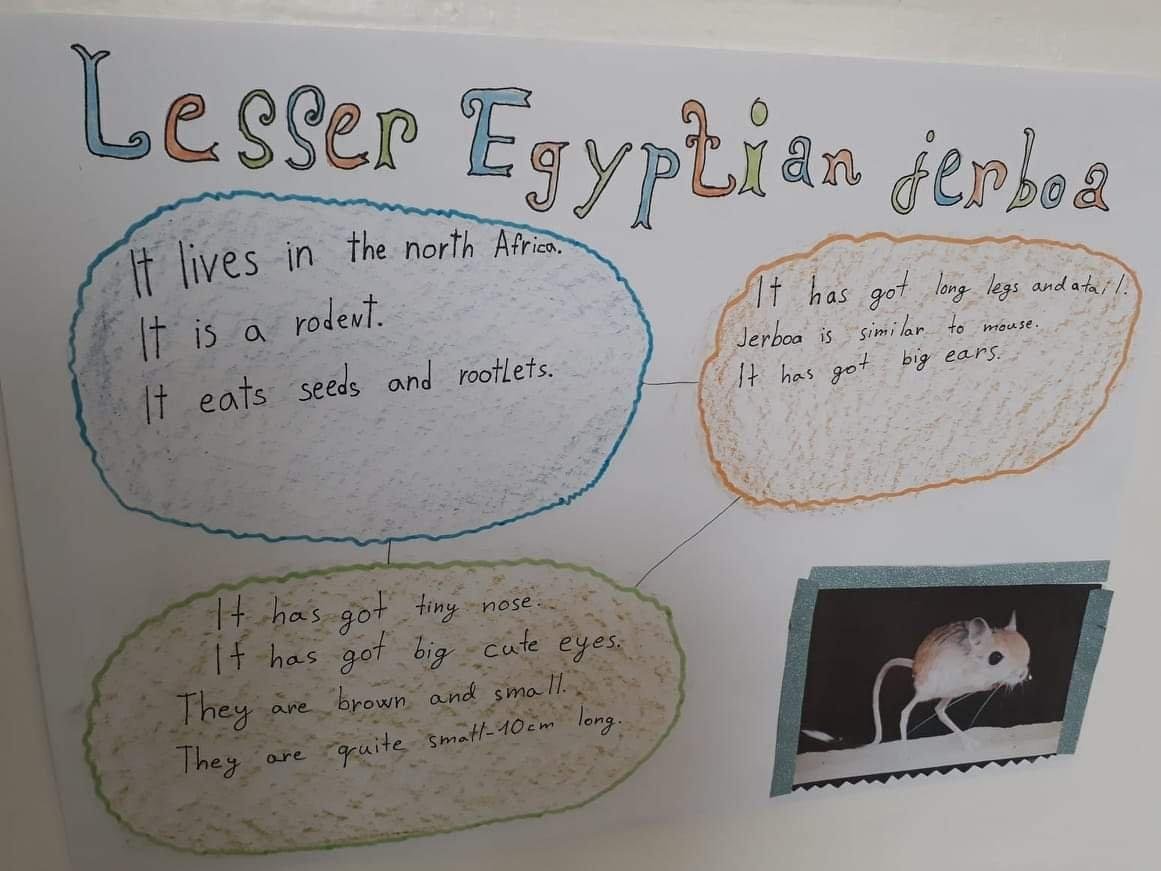 Lesser Egyptian jerboa
It lives in the north Africa.
It is a rodent.
It eats seeds and rootlets.
It has got long legs and a tail.
Jerboa is similar to mouse.
It has got big ears.
It has got tiny nose.
It has got big cute eyes.
They are brown and small.
They are quite small-10cm long.